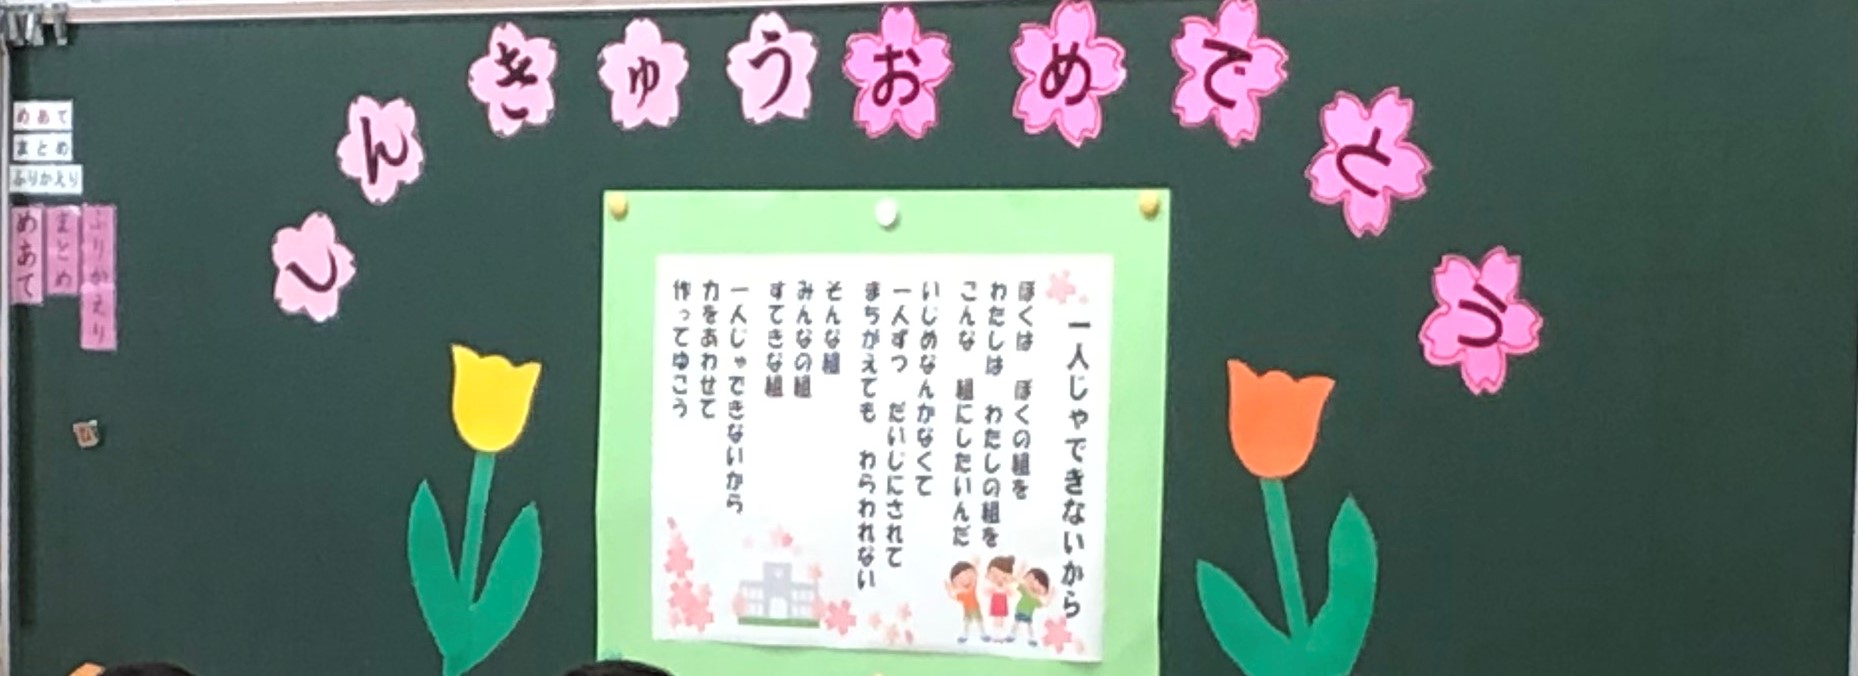 しんきゅうおめでとう
めあて
まとめ
ふりかえり
ふりかえり
まとめ
めあて
一人じゃできないから
ぼくは　ぼくの組を
わたしは　わたしの組を
こんな　組にしたいんだ
いじめなんかなくて
一人ずつ　だいじにされて
まちがえても　わらわれない
そんな組
みんなの組
すてきな組
一人じゃできないから
力をあわせて
作ってゆこう